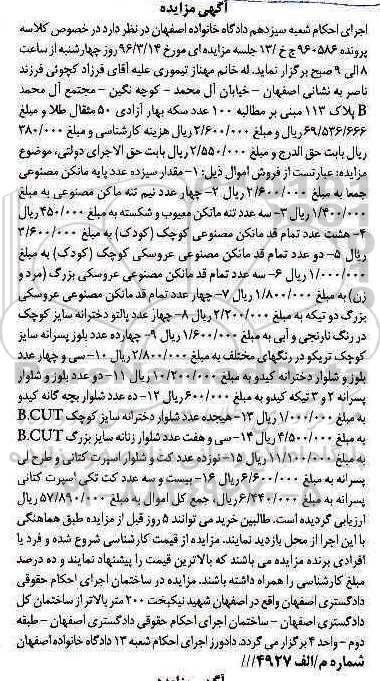 آگهی مزایده
اجرای احکام شعبه سیزدهم دادگاه خانواده اصفهان در نظر دارد در خصوص کلاسه
پرونده ۹۶۰۵۸۶ ج خ /۱۳ جلسه مزایده ای مورخ ۹۶/۳/۱۴ روز چهارشنبه از ساعت
۸ الی ۹ صبح برگزار نماید. له خانم مهناز تیموری علیه آقای فرزاد کچوئی فرزند
ناصر به نشانی اصفهان - خیابان آل محمد - کوچه نگین - مجتمع آل محمد
B پلاک ۱۱۳ مبنی بر مطالبه ۱۰۰ عدد سکه بهار آزادی ۵۰ مثقال طلا و مبلغ
۶۹/۵۳۶/۶۶۶ ریال و مبلغ ۲/۶۰۰/۰۰۰ ریال هزینه کارشناسی و مبلغ ۳۸۰/۰۰۰
ریال بابت حق الدرج و مبلغ ۲/۵۵۰/۰۰۰ ریال بابت حق الاجرای دولتی، موضوع
مزایده: عبارتست از فروش اموال ذیل: ۱- مقدار سیزده عدد پایه مانکن مصنوعی
جمعا به مبلغ ۲/۶۰۰/۰۰۰ ریال ۲- چهار عدد نیم تنه مانکن مصنوعی به مبلغ
۱/۴۰۰/۰۰۰ ریال ۳- سه عدد تنه مانکن معیوب و شکسته به مبلغ ۴۵۰/۰۰۰ ریال
۴- هشت عدد تمام قد مانکن مصنوعی کوچک (کودک) به مبلغ ۳/۶۰۰/۰۰۰
ریال ۵- دو عدد تمام قد مانکن مصنوعی عروسکی کوچک (کودک) به مبلغ
۱/۰۰۰/۰۰۰ ریال ۶- سه عدد تمام قد مانکن مصنوعی عروسکی بزرگ (مرد و
زن) به مبلغ ۱/۸۰۰/۰۰۰ ریال ۷- چهار عدد تمام قد مانکن مصنوعی عروسکی
بزرگ دو تیکه به مبلغ ۲/۲۰۰/۰۰۰ ریال ۸- چهار عدد پالتو دخترانه سایز کوچک
در رنگ نارنجی و آبی به مبلغ ۱/۶۰۰/۰۰۰ ریال ۹- چهارده عدد بلوز پسرانه سایز
کوچک تریکو در رنگهای مختلف به مبلغ ۲/۸۰۰/۰۰۰ ریال ۱۰- سی و چهار عدد
بلوز و شلوار دخترانه کیدو به مبلغ ۱۰/۲۰۰/۰۰۰ ریال ۱۱- دو عدد بلوز و شلوار
پسرانه ۲ و ۳ تیکه کیدو به مبلغ ۶۰۰/۰۰۰ ریال ۱۲- ده عدد شلوار بچه گانه کیدو
به مبلغ ۱/۰۰۰/۰۰۰ ریال ۱۳- هیجده عدد شلوار دخترانه سایز کوچک B.CUT
به مبلغ ۴/۵۰۰/۰۰۰ ریال ۱۴- سی و هفت عدد شلوار زنانه سایز بزرگ B.CUT
به مبلغ ۱۱/۱۰۰/۰۰۰ ریال ۱۵- نوزده عدد کت و شلوار اسپرت کتانی و طرح لی
پسرانه به مبلغ ۶/۶۰۰/۰۰۰ ریال ۱۶- بیست و سه عدد کت تکی اسپرت کتانی
پسرانه به مبلغ ۶/۴۴۰/۰۰۰ ریال، جمع کل اموال به مبلغ ۵۷/۸۹۰/۰۰۰ ریال
ارزیابی گردیده است. طالبین خرید می توانند ۵ روز قبل از مزایده طبق هماهنگی
با این اجرا از محل بازدید نمایند. مزایده از قیمت کارشناسی شروع شده و فرد یا
افرادی برنده مزایده می باشند که بالاترین قیمت را پیشنهاد نمایند و ده درصد
مبلغ کارشناسی را همراه داشته باشند. مزایده در ساختمان اجرای احکام حقوقی
دادگستری اصفهان واقع در اصفهان شهید نیکبخت ۲۰۰ متر بالاتر از ساختمان کل
دادگستری اصفهان - ساختمان اجرای احکام حقوقی دادگستری اصفهان - طبقه
دوم - واحد ۴ برگزار می گردد. دادورز اجرای احکام شعبه ۱۳ دادگاه خانواده اصفهان
شماره م/الف ۴۹۲۷///